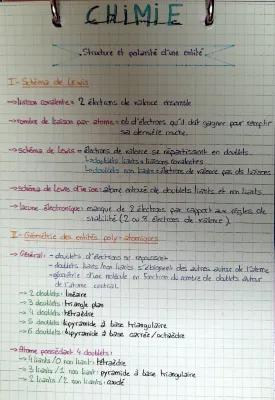 CHIMIE
Structure et polarité d'une entité.
I- Schéma de Lewis
→ liaison covalente = 2 électrons de valence ensemble
→ nombre de liaison par atome = nb d'électrons qu'il doit gagner pour remplir
sa dernière couche.
→ schéma de Lewis = électrons de valence se répartissent en doublets.
↳ doublets liants = liaisons covalentes
↳ doublets non liants = électrons de valence pas de liaisons
→ schéma de Lewis d'un ion : atome entouré de doublets liants et non liants.
→ lacune électronique : manque de 2 électrons par rapport aux règles de
stabilité (2 ou 8 électrons de valence).
II- Géométrie des entités poly-atomiques
→ Général : - doublets d'électrons se repoussent
- doublets liants/non liants s'éloignent des autres autour de l'atome
- géométrie d'une molécule en fonction du nombre de doublets autour
de l'atome central.
→ 2 doublets : linéaire
→ 3 doublets : triangle plan
→ 4 doublets : tétraèdre
→ 5 doublets : bipyramide à base triangulaire
→ 6 doublets : bipyramide à base carrée/octaèdre
→ Atome possédant 4 doublets :
→ 4 liants/0 non liant : tétraèdre
→ 3 liants/1 non liant : pyramide à base triangulaire
→ 2 liants/2 non liants : coudé